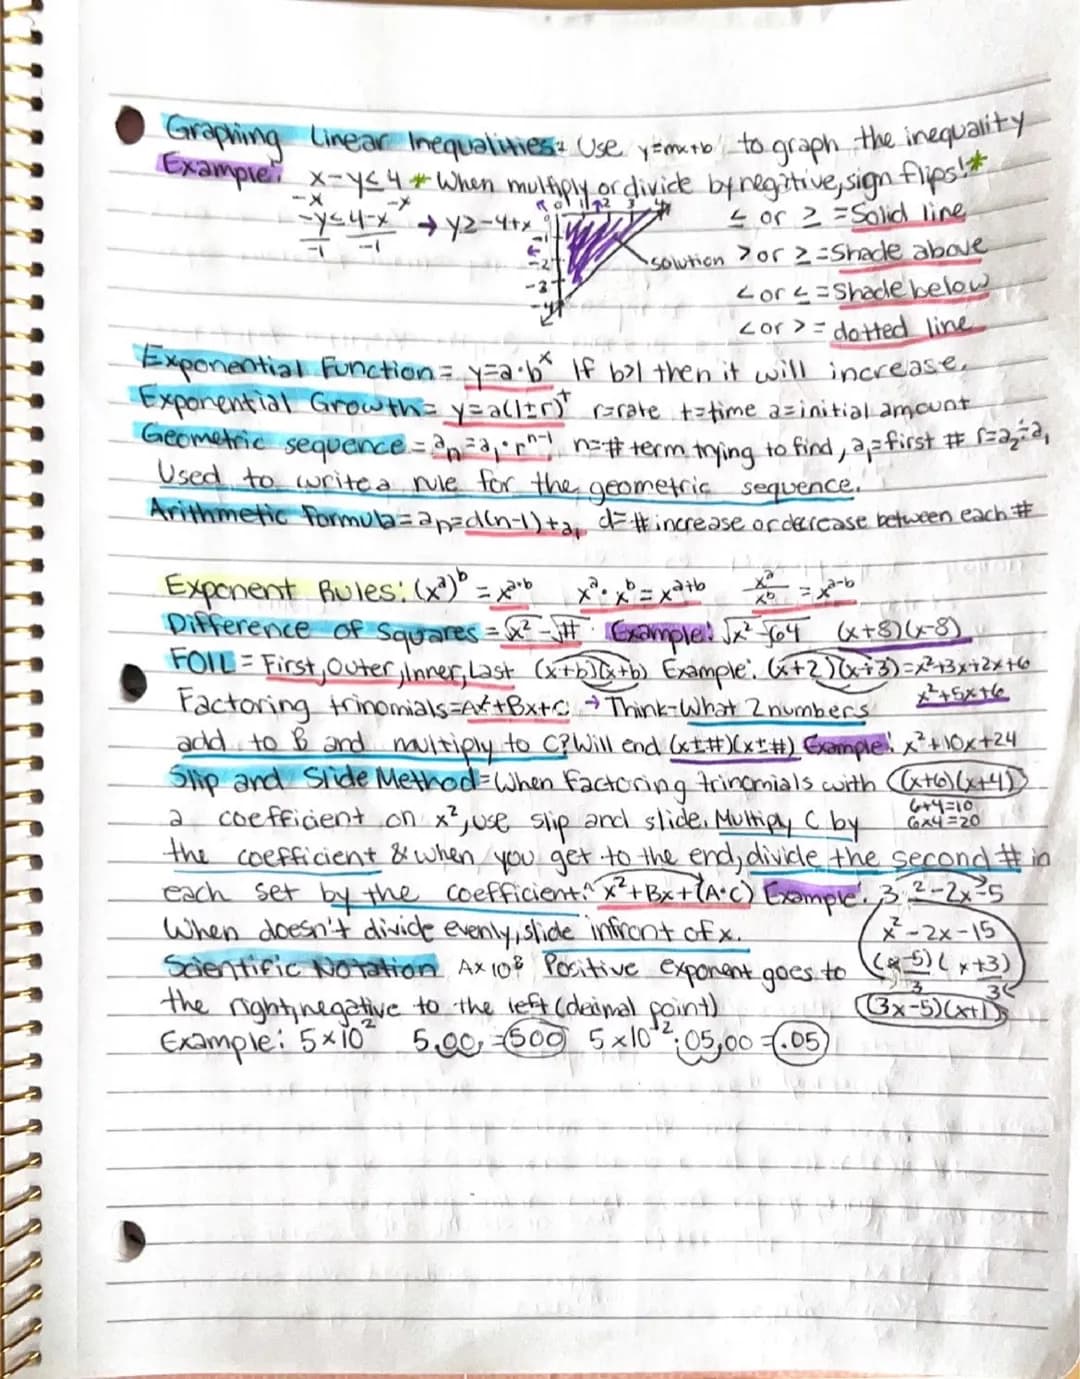 Graphing Linear Inequalities: Use y=mx+b to graph the inequality
Example: x-y≤4 * When multiply or divide by negitive, sign flips! *
-x -x
-y≤4-x → y≥-4+x
-1 -1
0 1 2 3 4
-1
-2
-3
-4
solution
≤ or ≥ = Solid line
> or ≥ = Shade above
< or ≤ = Shade below
< or > = dotted line
Exponential Function = y=a·bˣ If b>1 then it will increase.
Exponential Growth = y=a(1±r)ᵗ r=rate t=time a=initial amount
Geometric sequence = aₙ=a₁·rⁿ⁻¹ n=# term trying to find, a₁=first # r=a₂÷a₁
Used to write a rule for the geometric sequence.
Arithmetic Formula = aₙ=d(n-1)+a₁ d=# increase or decrease between each #
Exponent Rules: (xᵃ)ᵇ = xᵃ·ᵇ xᵃ·xᵇ=xᵃ⁺ᵇ xᵃ/xᵇ = xᵃ⁻ᵇ
Difference of Squares = √x² - √# Example: √x² -√64 (x+8)(x-8)
FOIL = First, Outer, Inner, Last (x+b)(x+b) Example: (x+2)(x+3)=x²+3x+2x+6
x²+5x+6
Factoring trinomials=Ax²+Bx+C → Think-What 2 numbers
add to B and multiply to C? Will end (x±#)(x±#) Example: x²+10x+24
Slip and Slide Method=When factoring trinomials with (x+6)(x+4)
6+4=10
6x4=20
a coefficient on x², use slip and slide. Multiply C by
the coefficient & when you get to the end, divide the second # in
each set by the coefficient. x²+Bx+(A·C) Example: 3x²-2x-5
When doesn't divide evenly, slide infront of x.
x²-2x-15
(x-5)(x+3)
3 3
(3x-5)(x+1)
Scientific Notation Ax10ᴮ Positive exponent goes to
the right, negative to the left (decimal point)
Example: 5×10² 5.00, =500 5×10⁻²: 05,00 = .05